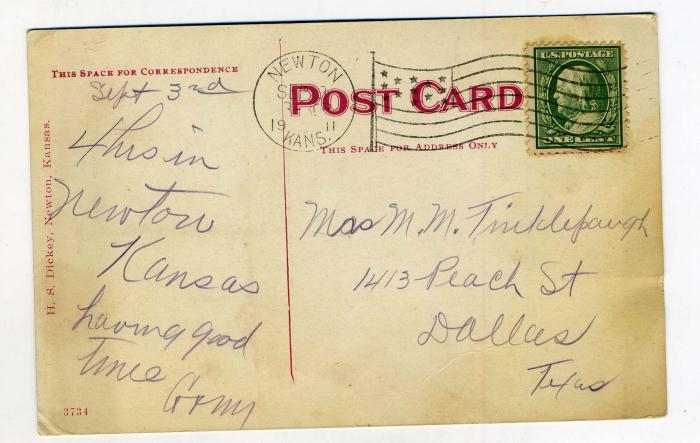 THIS SPACE FOR CORRESPONDENCE
Sept 3rd
4 hrs in
Newton
Kansas
having good
time
H. S. Dickey, Newton, Kansas.
3734
NEWTON
19 11
KANS.
POST CARD
THIS SPACE FOR ADDRESS ONLY
U.S. POSTAGE
ONE CENT
Mrs M. M. Tinklepaugh
1413 Peach St
Dallas
Texas